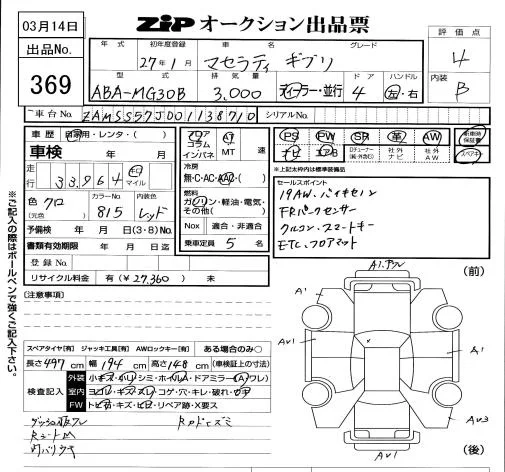 03月14日
ZiP オークション出品票
出品No.
369
年式 初年度登録 車名 グレード 評価点
27年1月 マセラティ ギブリ 4
型式 排気量 ドア ハンドル 内装
ABA-MG30B 3,000 ディーラー・並行 4 左・右 B
車台No. ZAMSS57J001138710 シリアルNo.
車歴 自家用・レンタ・( )
車検 年 月
走行 33,964 km マイル
色 クロ (元色) カラーNo. 815 内装色 レッド
予備検 年 月 日(3・8)No.
書類有効期限 年 月 日迄
登録No.
リサイクル料金 有(¥27,360) 未
フロア コラム インパネ AT MT 速
冷房 無・C・AC・AAC・( )
燃料 ガソリン・軽油・電気・その他( )
Nox 適合・非適合
乗車定員 5 名
PS PW SR 革 AW 新車時保証書
ナビ エアB Dチューナー(純・外含む) 社外ナビ 社外AW スペアキー
*上記太枠内は標準装備品
セールスポイント
19AW、バイキセノン
FRパークセンサー
クルコン、スマートキー
ETC、フロアマット
※ご記入の際はボールペンで強くご記入下さい。
[注意事項]
スペアタイヤ[有] ジャッキ工具[有] AWロックキー[有] ある場合のみ○
長さ497cm 幅194cm 高さ148cm (車検証上の寸法)
検査記入
外装 小キズ・小凹・シミ・ホイル(A)・ドアミラー(A)(ワレ)
室内 ヨゴレ・キズ・スレ・コゲ・穴・キレ・破れ
FW トビ石・キズ・ヒビ・リペア跡・X要ス
(前)
A1
A1
AU1
A1
AU3
AU1
(後)